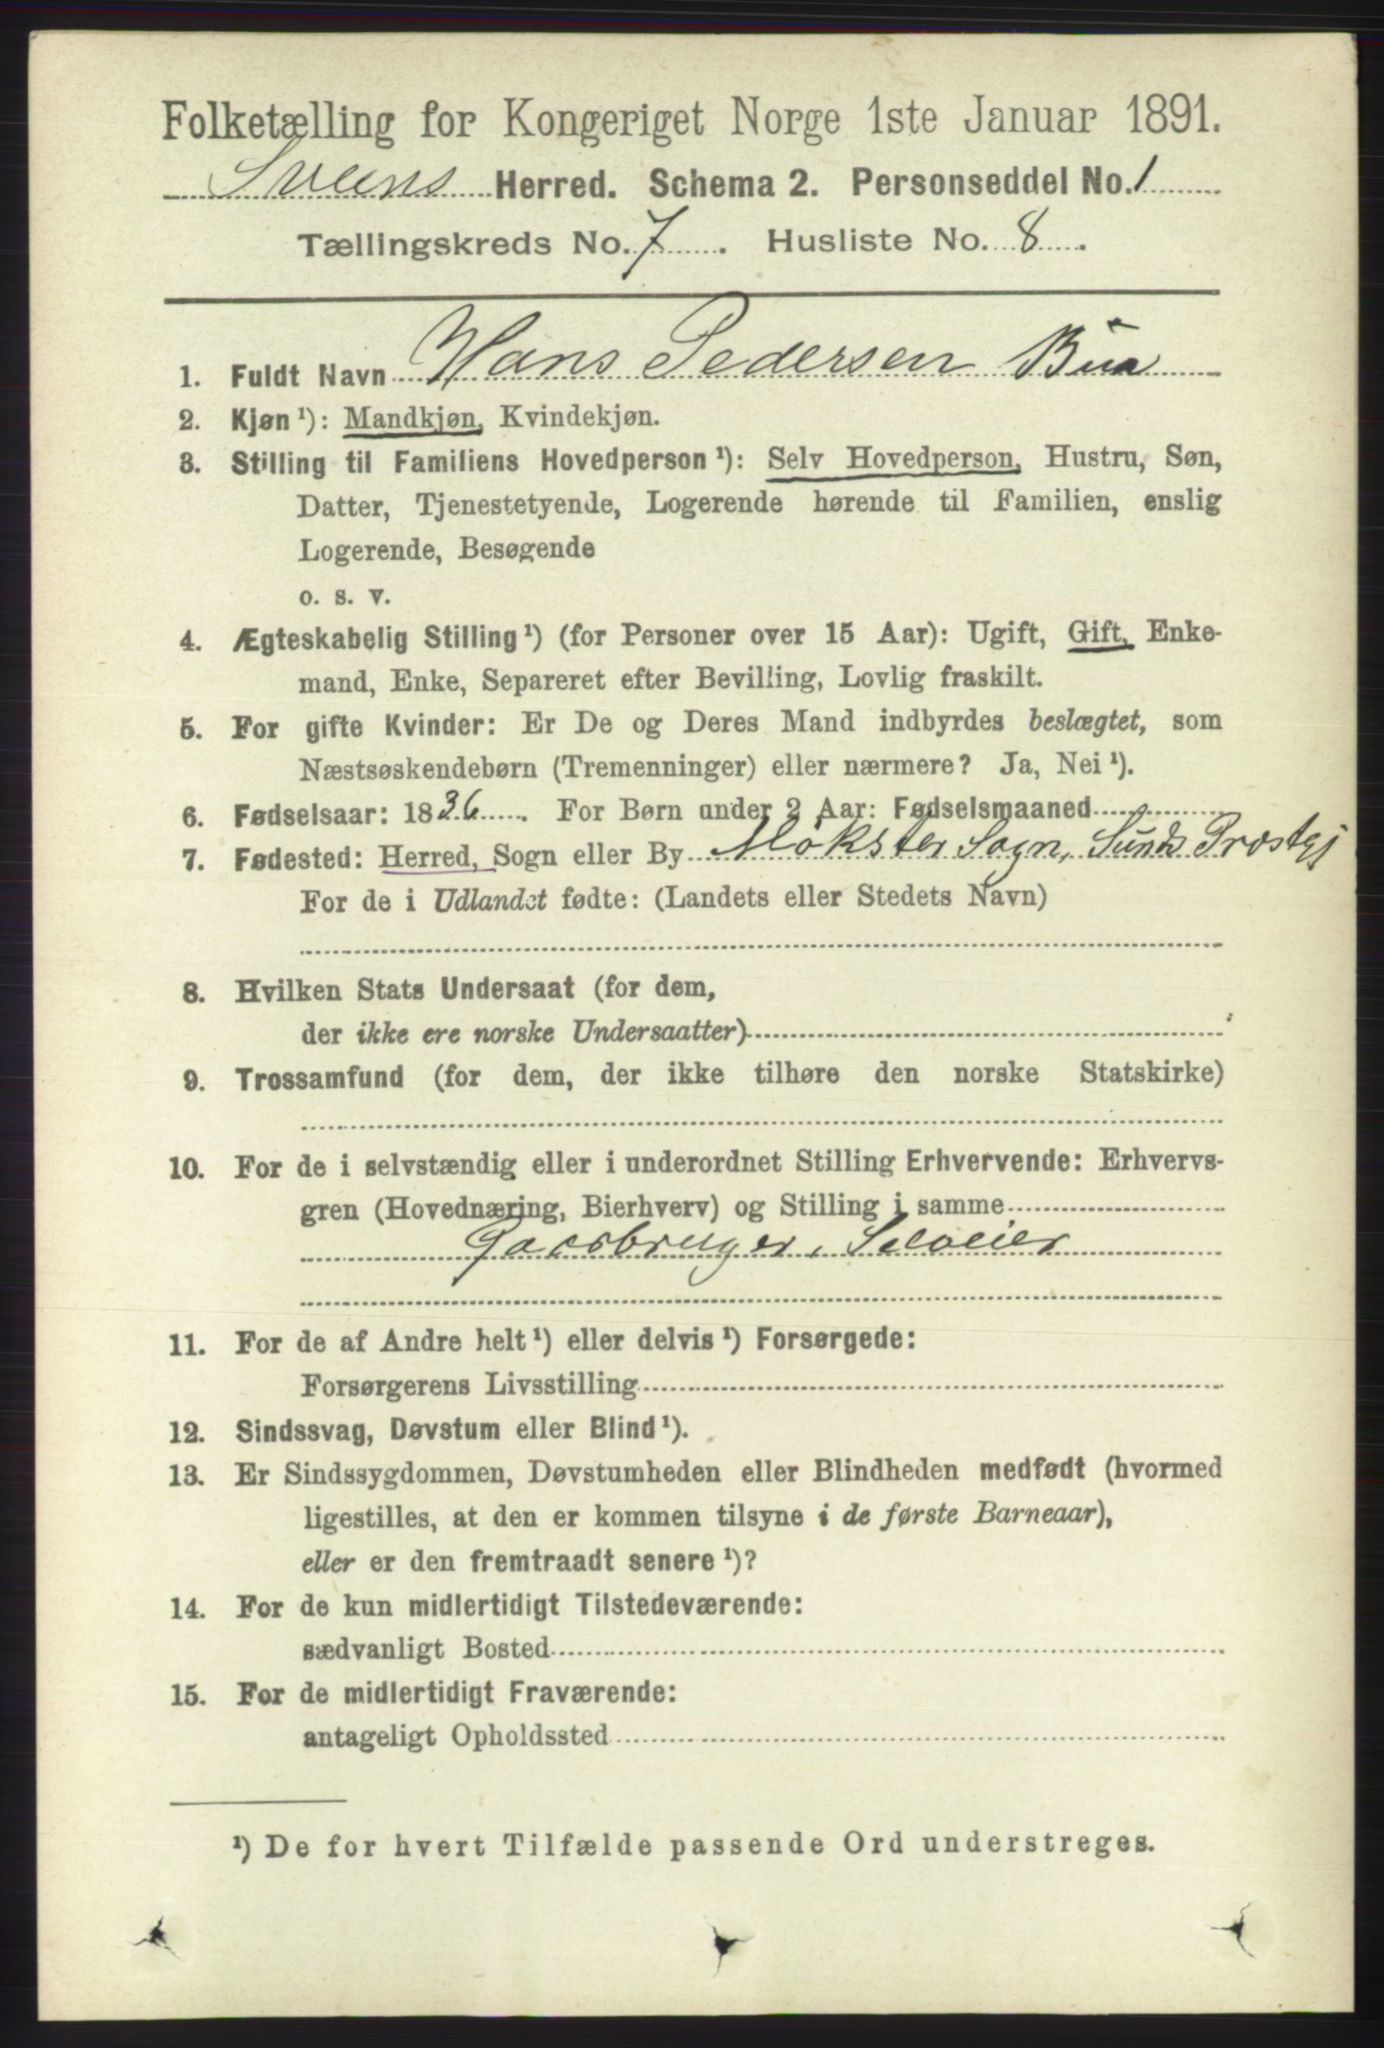 Folketælling for Kongeriget Norge 1ste Januar 1891.
Sveens Herred. Schema 2. Personseddel No. 1
Tællingskreds No. 7. Husliste No. 8.
1. Fuldt Navn Hans Pedersen Bua
2. Kjøn¹): Mandkjøn, Kvindekjøn.
3. Stilling til Familiens Hovedperson¹): Selv Hovedperson, Hustru, Søn,
Datter, Tjenestetyende, Logerende hørende til Familien, enslig
Logerende, Besøgende
o. s. v.
4. Ægteskabelig Stilling¹) (for Personer over 15 Aar): Ugift, Gift, Enke-
mand, Enke, Separeret efter Bevilling, Lovlig fraskilt.
5. For gifte Kvinder: Er De og Deres Mand indbyrdes beslægtet, som
Næstsøskendebørn (Tremenninger) eller nærmere? Ja, Nei¹).
6. Fødselsaar: 1836. For Børn under 2 Aar: Fødselsmaaned
7. Fødested: Herred, Sogn eller By Møkster Sogn, Sunds Præstgj
For de i Udlandet fødte: (Landets eller Stedets Navn)
8. Hvilken Stats Undersaat (for dem,
der ikke ere norske Undersaatter)
9. Trossamfund (for dem, der ikke tilhøre den norske Statskirke)
10. For de i selvstændig eller i underordnet Stilling Erhvervende: Erhvervs-
gren (Hovednæring, Bierhverv) og Stilling i samme
Gaardbruger, Selveier
11. For de af Andre helt¹) eller delvis¹) Forsørgede:
Forsørgerens Livsstilling
12. Sindssvag, Døvstum eller Blind¹).
13. Er Sindssygdommen, Døvstumheden eller Blindheden medfødt (hvormed
ligestilles, at den er kommen tilsyne i de første Barneaar),
eller er den fremtraadt senere¹)?
14. For de kun midlertidigt Tilstedeværende:
sædvanligt Bosted
15. For de midlertidigt Fraværende:
antageligt Opholdssted
¹) De for hvert Tilfælde passende Ord understreges.